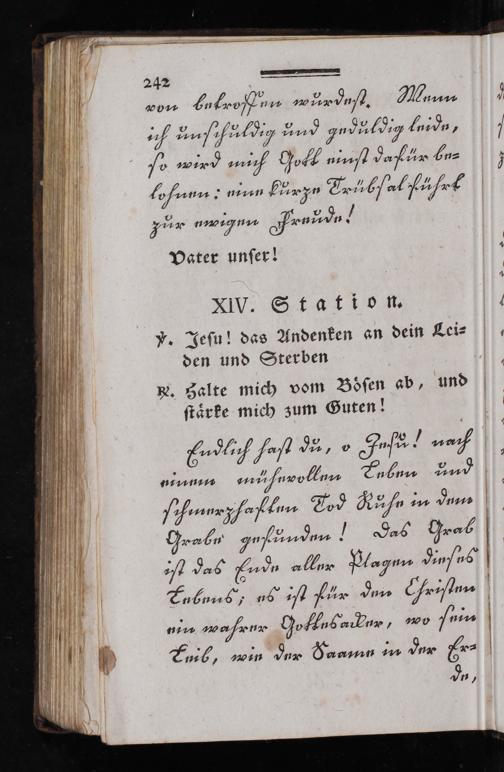 242
von betroffen wurdest. Wenn
ich unschuldig und geduldig leide,
so wird mich Gott einst dafür be-
lohnen: eine kurze Trübsal führt
zur ewigen Freude!
Vater unser!
XIV. Station.
℣. Jesu! das Andenken an dein Lei-
den und Sterben
℟. Halte mich vom Bösen ab, und
stärke mich zum Guten!
Endlich hast du, o Jesu! nach
einem mühevollen Leben und
schmerzhaften Tod Ruhe in dem
Grabe gefunden! Das Grab
ist das Ende aller Plagen dieses
Lebens; es ist für den Christen
ein wahrer Gottesacker, wo sein
Leib, wie der Saame in der Er-
de,